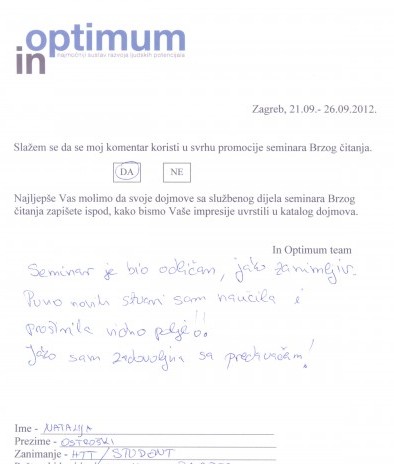 in optimum
najmoćniji sustav razvoja ljudskih potencijala
Zagreb, 21.09.- 26.09.2012.
Slažem se da se moj komentar koristi u svrhu promocije seminara Brzog čitanja.
DA NE
Najljepše Vas molimo da svoje dojmove sa službenog dijela seminara Brzog
čitanja zapišete ispod, kako bismo Vaše impresije uvrstili u katalog dojmova.
In Optimum team
Seminar je bio odličan, jako zanimljiv.
Puno novih stvari sam naučila i
proširila vidno polje!!
Jako sam zadovoljna sa predavačem!
Ime - NATALIJA
Prezime - OSTROŠKI
Zanimanje - HTT / STUDENT